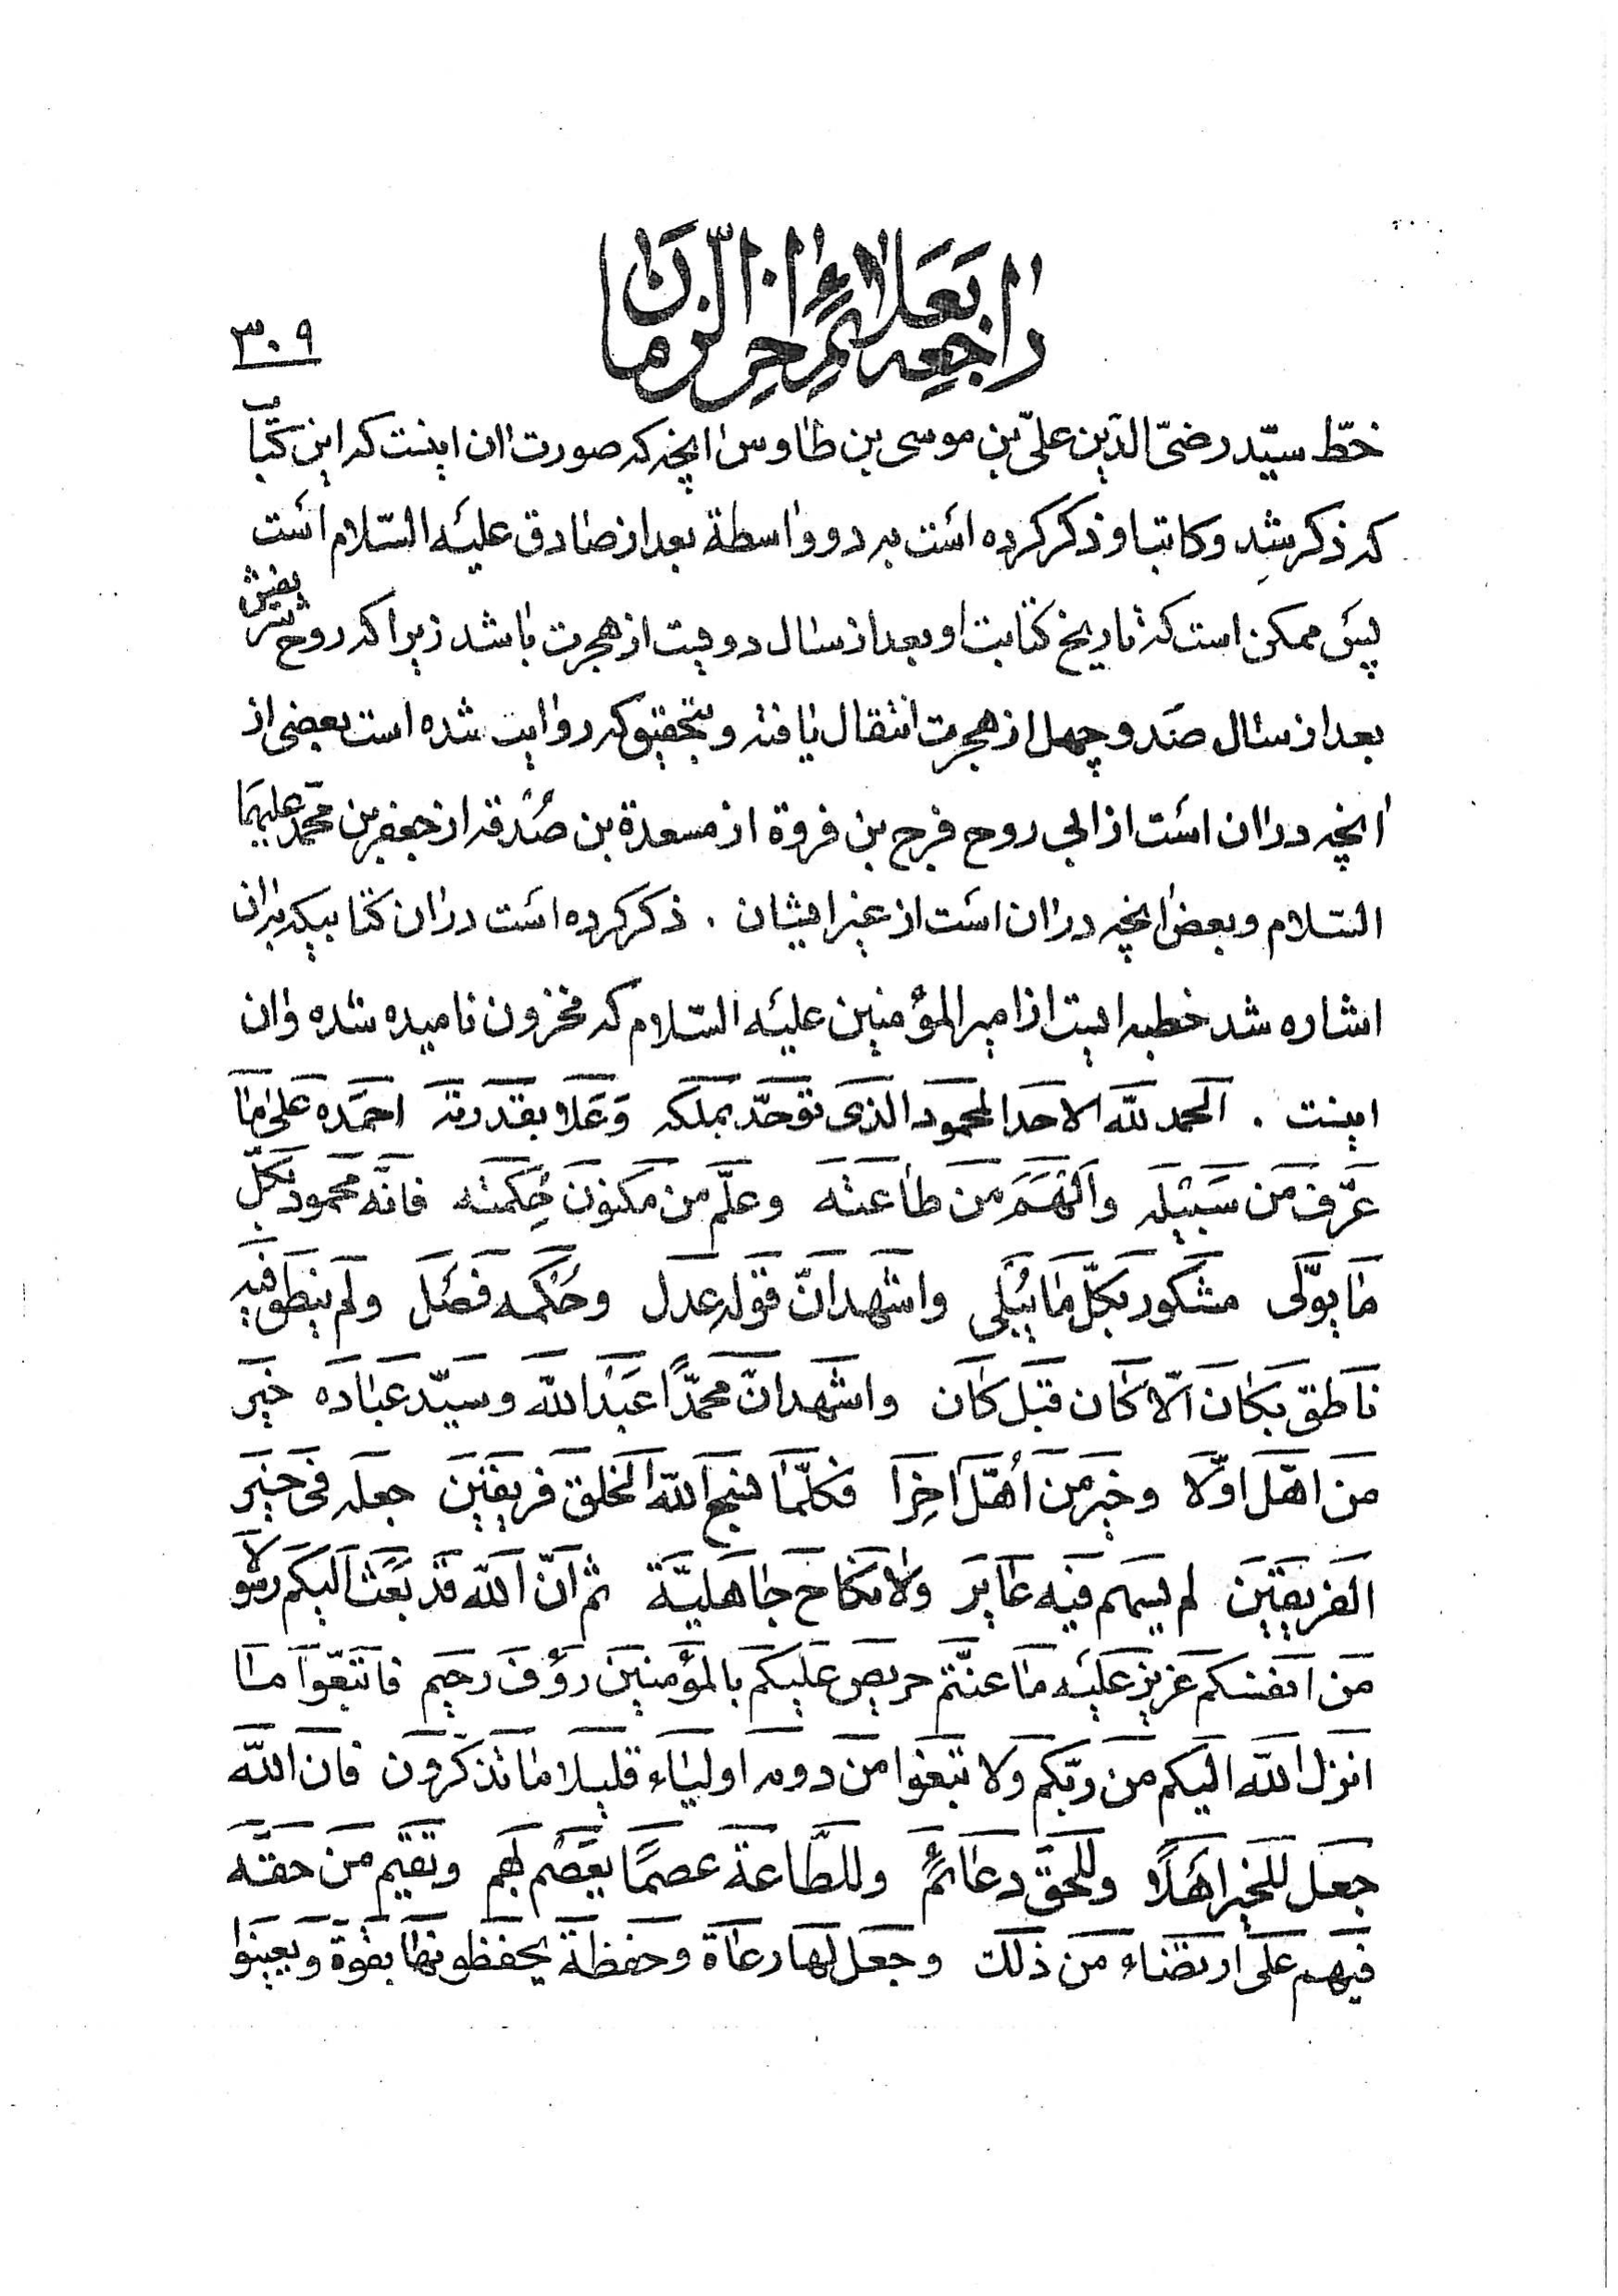 راجعه بعلائم اخر الزمان
۳۰۹
خطّ سیّد رضیّ الدّین علیّ بن موسی بن طاوس انچه که صورت ان اینست که این کتاب
که ذکر شد و کاتب او ذکر کرده است به دو واسطة بعد از صادق علیه السّلام است
پس ممکن است که تاریخ کتابت او بعد از سال دویست از هجرت باشد زیرا که روح شریفش
بعد از سال صَد و چهل از هجرت انتقال یافته و بتحقیق که روایت شده است بعضی از
انچه در ان است از ابی روح فرج بن فروة از مسعدة بن صَدقه از جعفر بن محمّد علیهما
السّلام و بعض انچه در ان است از غیر ایشان . ذکر کرده است در ان کتابیکه بران
اشاره شد خطبه ایست از امیر المؤمنین علیه السّلام که مخزون نامیده شده وان
اینست . الحمد للّه الاحد المحمود الذی توحّد بملکه وَعَلا بقدرته احمده علی ما
عرّف من سبیله والهم من طاعته وعلّم من مکنون حِکمته فانّه محمود بکلّ
ما یولّی مشکور بکلّ ما یُبلی واشهد انّ قوله عدل وحُکمه فصل ولم ینطق فیه
ناطق بکان الّا کان قبل کان واشهد انّ محمّدًا عبد اللّه وسیّد عباده خیر
من اهّل اوّلا وخیر من اُهّل اخِرا فکلّما نسج اللّه الخلق فریقین جعله فی خیر
الفریقین لم یسهم فیه عایر ولا نکاح جاهلیّة ثم انّ اللّه قد بعث الیکم رسولا
من انفسکم عزیز علیه ما عنتّم حریص علیکم بالمؤمنین رؤف رحیم فاتّبعوا ما
انزل اللّه الیکم من ربّکم ولا تتبعوا من دونه اولیاء قلیلا ما تذکّرون فان اللّه
جعل للخیر اهلًا وللحقّ دعائم وللطّاعة عصمًا یعصم بهم وتقیم من حقّه
فیهم علی ارتضاء من ذلک وجعل لها رعاة وحفظة یحفظونها بقوّة ویعینوا